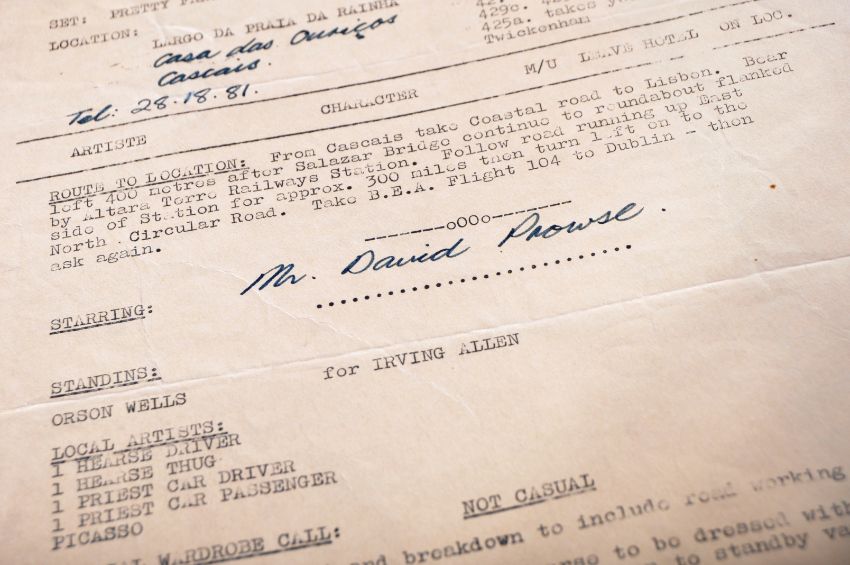 SET: PRETTY
LOCATION: LARGO DA PRAIA DA RAINHA
Casa das Ouriços
Cascais.
Tel: 28·18·81.
429c.
425a. takes
Twickenham
M/U LEAVE HOTEL ON LOC.
ARTISTE CHARACTER
ROUTE TO LOCATION: From Cascais take Coastal road to Lisbon. Bear
left 400 metres after Salazar Bridge continue to roundabout flanked
by Altara Torre Railways Station. Follow road running up East
side of Station for approx. 300 miles then turn left on to the
North Circular Road. Take B.E.A. Flight 104 to Dublin - then
ask again.
-------oOOo-------
Mr. David Prowse.
STARRING:
STANDINS:
for IRVING ALLEN
ORSON WELLS
LOCAL ARTISTS:
1 HEARSE DRIVER
1 HEARSE THUG
1 PRIEST CAR DRIVER
1 PRIEST CAR PASSENGER
PICASSO
NOT CASUAL
WARDROBE CALL:
and breakdown to include road working
to be dressed with
to standby